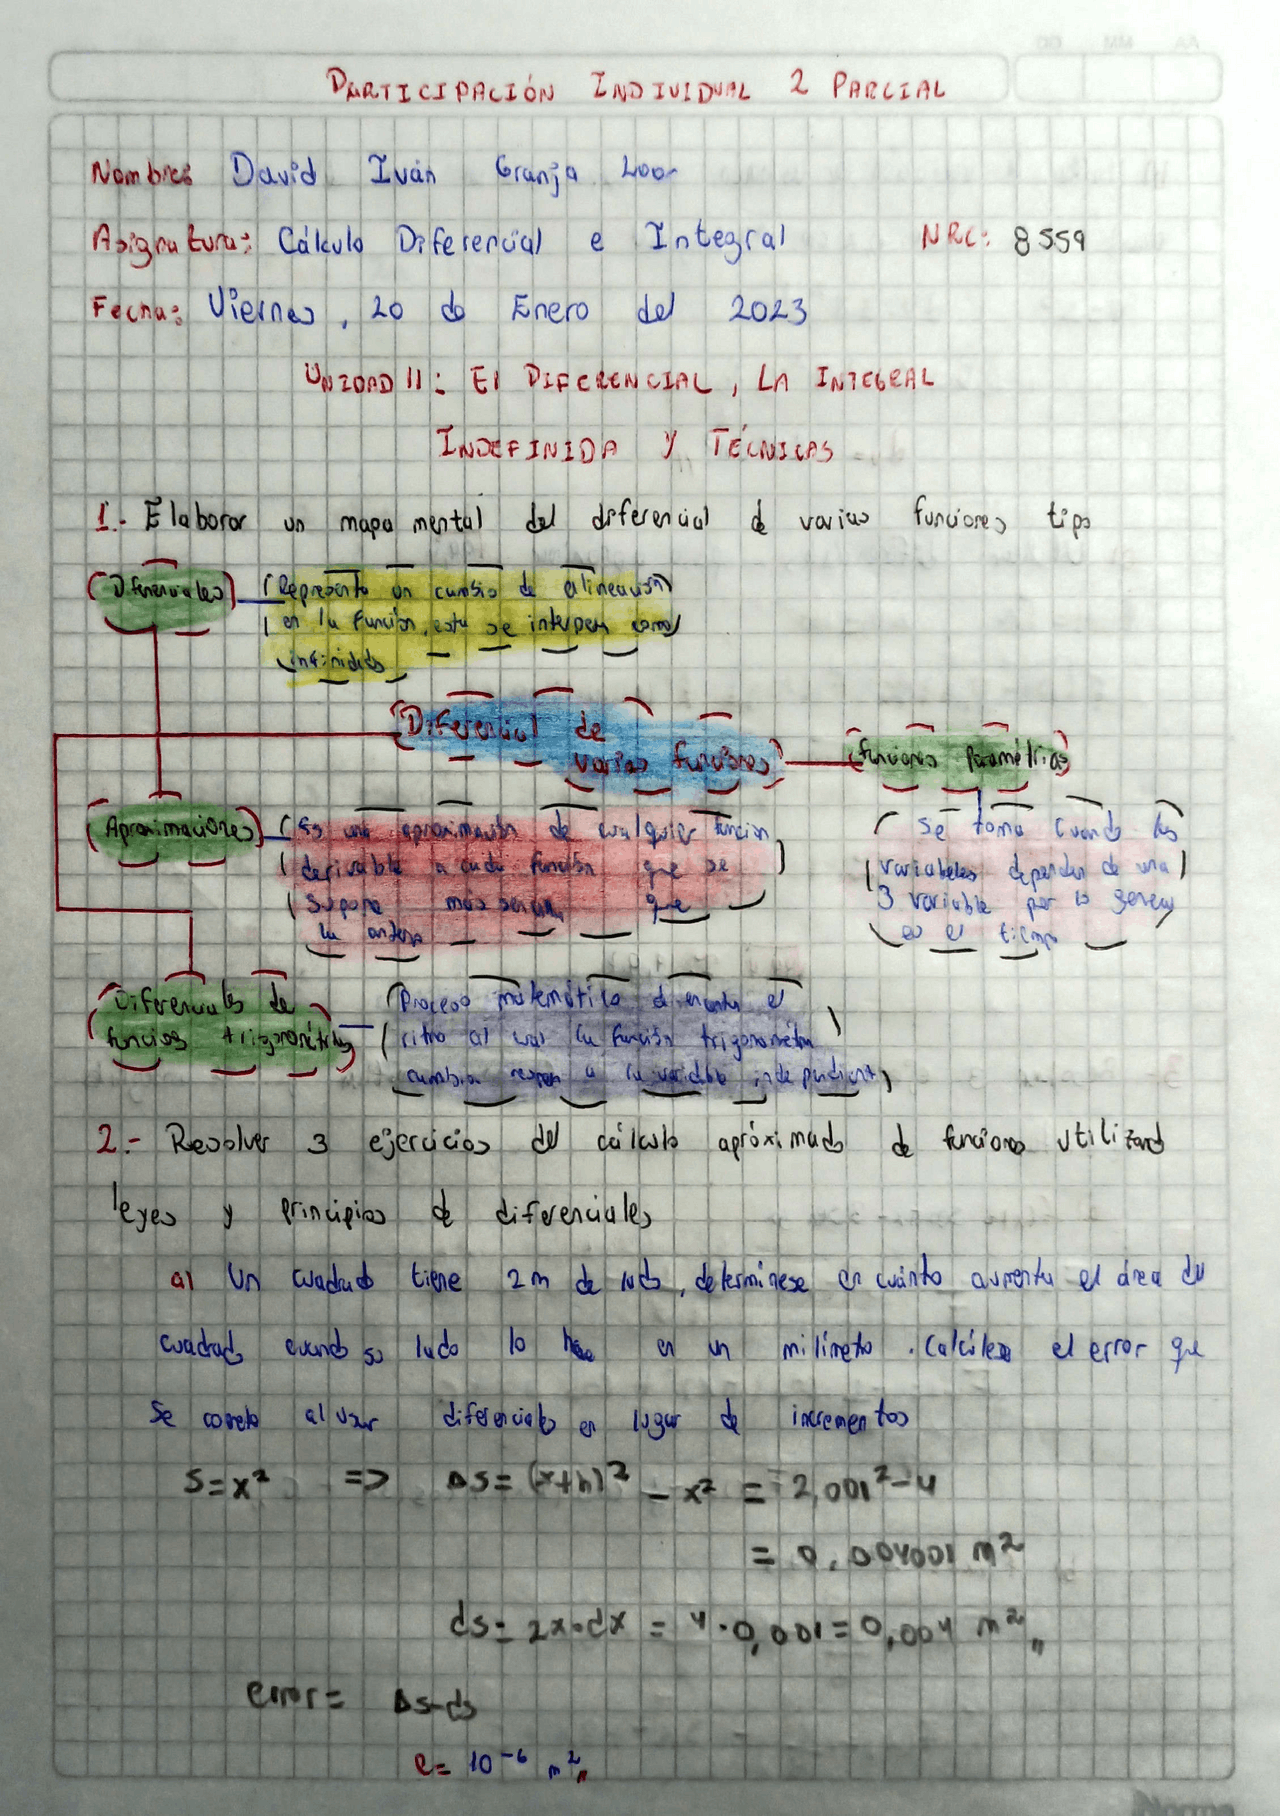 PARTICIPACIÓN INDIVIDUAL 2 PARCIAL
Nombre: David Iván Granja Loor
Asignatura: Cálculo Diferencial e Integral NRC: 8559
Fecha: Viernes, 20 de Enero del 2023
UNIDAD II: El DIFERENCIAL, LA INTEGRAL
INDEFINIDA Y TÉCNICAS
1.- Elaborar un mapa mental del diferencial de varias funciones tipo
Diferenciales
Representa un cambio de alineación
en la función, esta se como
Diferencial de
varias funciones
Funciones Paramétricas
Aproximaciones
Es una aproximación de cualquier función
derivable a cada función que se
supone más que
la
Se toma cuando las
variabeles dependen de una
3 variable por lo
es el tiempo
Diferenciales de
funcios trigonométricas
Proceso matemático el
ritmo al cual la función trigonométrica
cambia a la variable independiente
2.- Resolver 3 ejercicios del cálculo apróximado de funciones utilizand
leyes y principios de diferenciales
a) Un cuadrado tiene 2m de lado, determínese en cuánto aumenta el área del
cuadrado cuando su lado lo en un milímetro. Calcúlese el error que
se comete al usar diferenciales en lugar de incrementos
S=x² => ΔS=(x+h)² - x² = 2,001²-4
= 0.004001 m²
ds= 2x·dx = 4·0,001=0,004 m²,,
error= Δs-ds
e= 10⁻⁶ m²,,